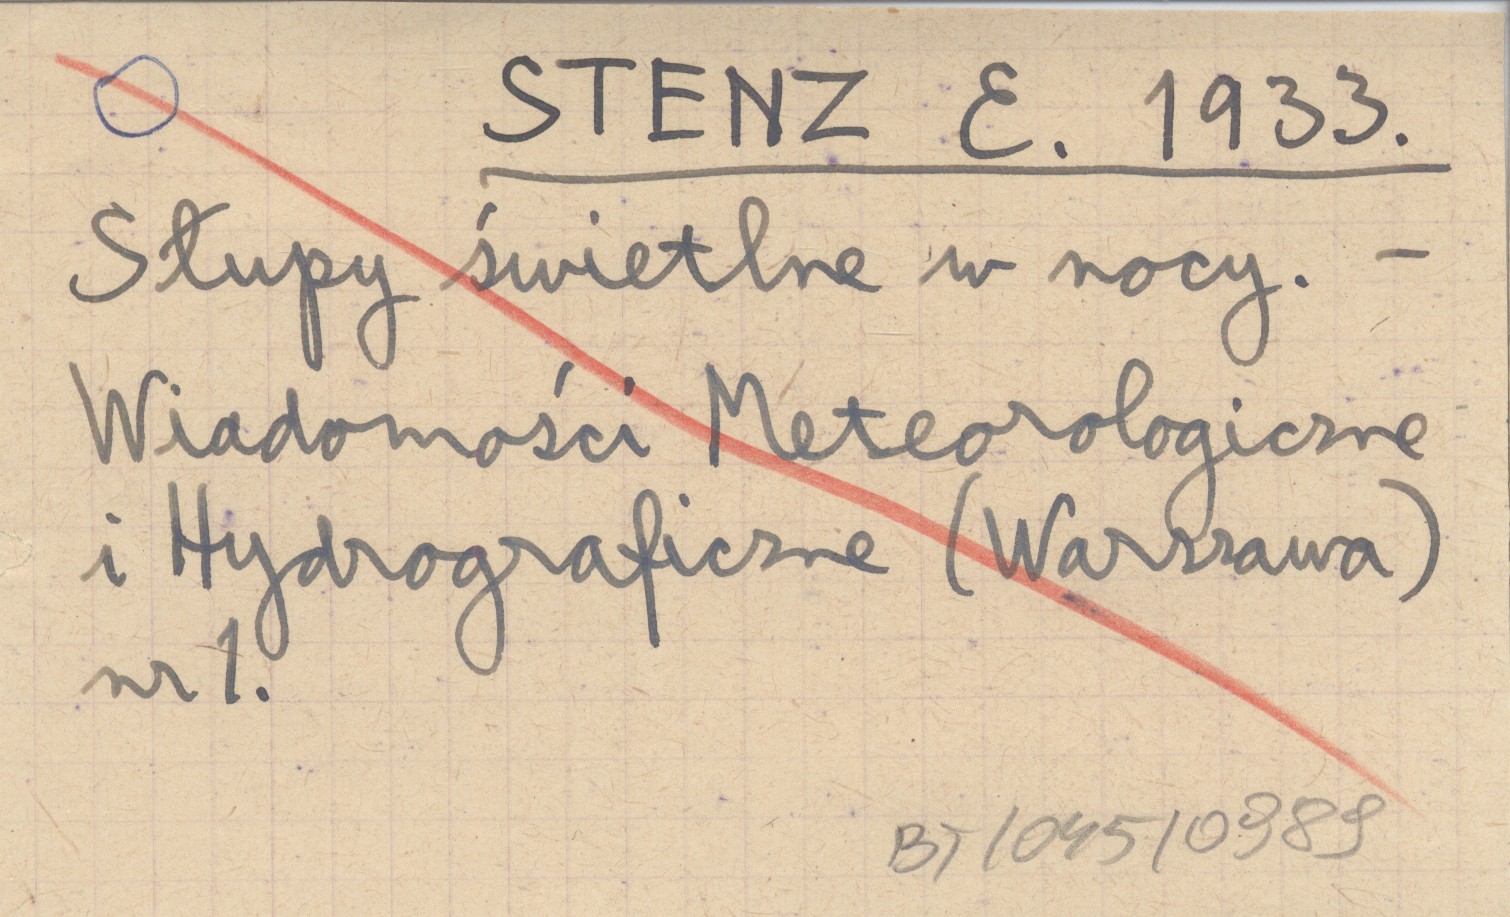 STENZ E. 1933.
Słupy świetlne w nocy. –
Wiadomości Meteorologiczne
i Hydrograficzne (Warszawa)
nr 1.
BT/045/0989